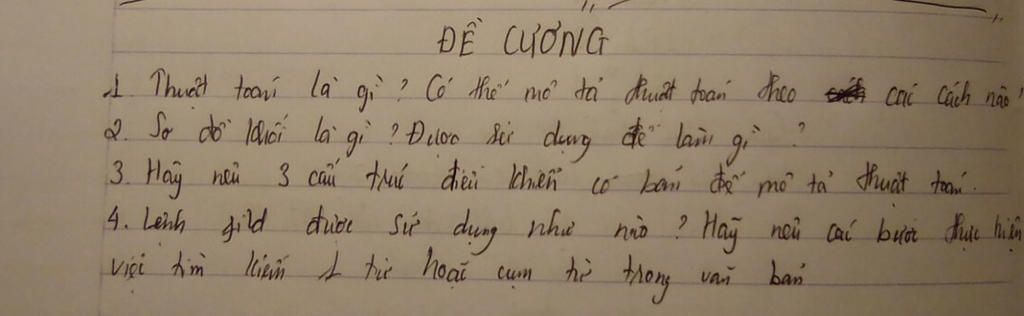 ĐỀ CƯƠNG
1. Thuật toán là gì? Có thể mô tả thuật toán theo các cách nào?
2. Sơ đồ khối là gì? Được sử dụng để làm gì?
3. Hãy nêu 3 cấu trúc điều khiển cơ bản để mô tả thuật toán.
4. Lệnh find được sử dụng như nào? Hãy nêu các bước thực hiện
việc tìm kiếm 1 từ hoặc cụm từ trong văn bản